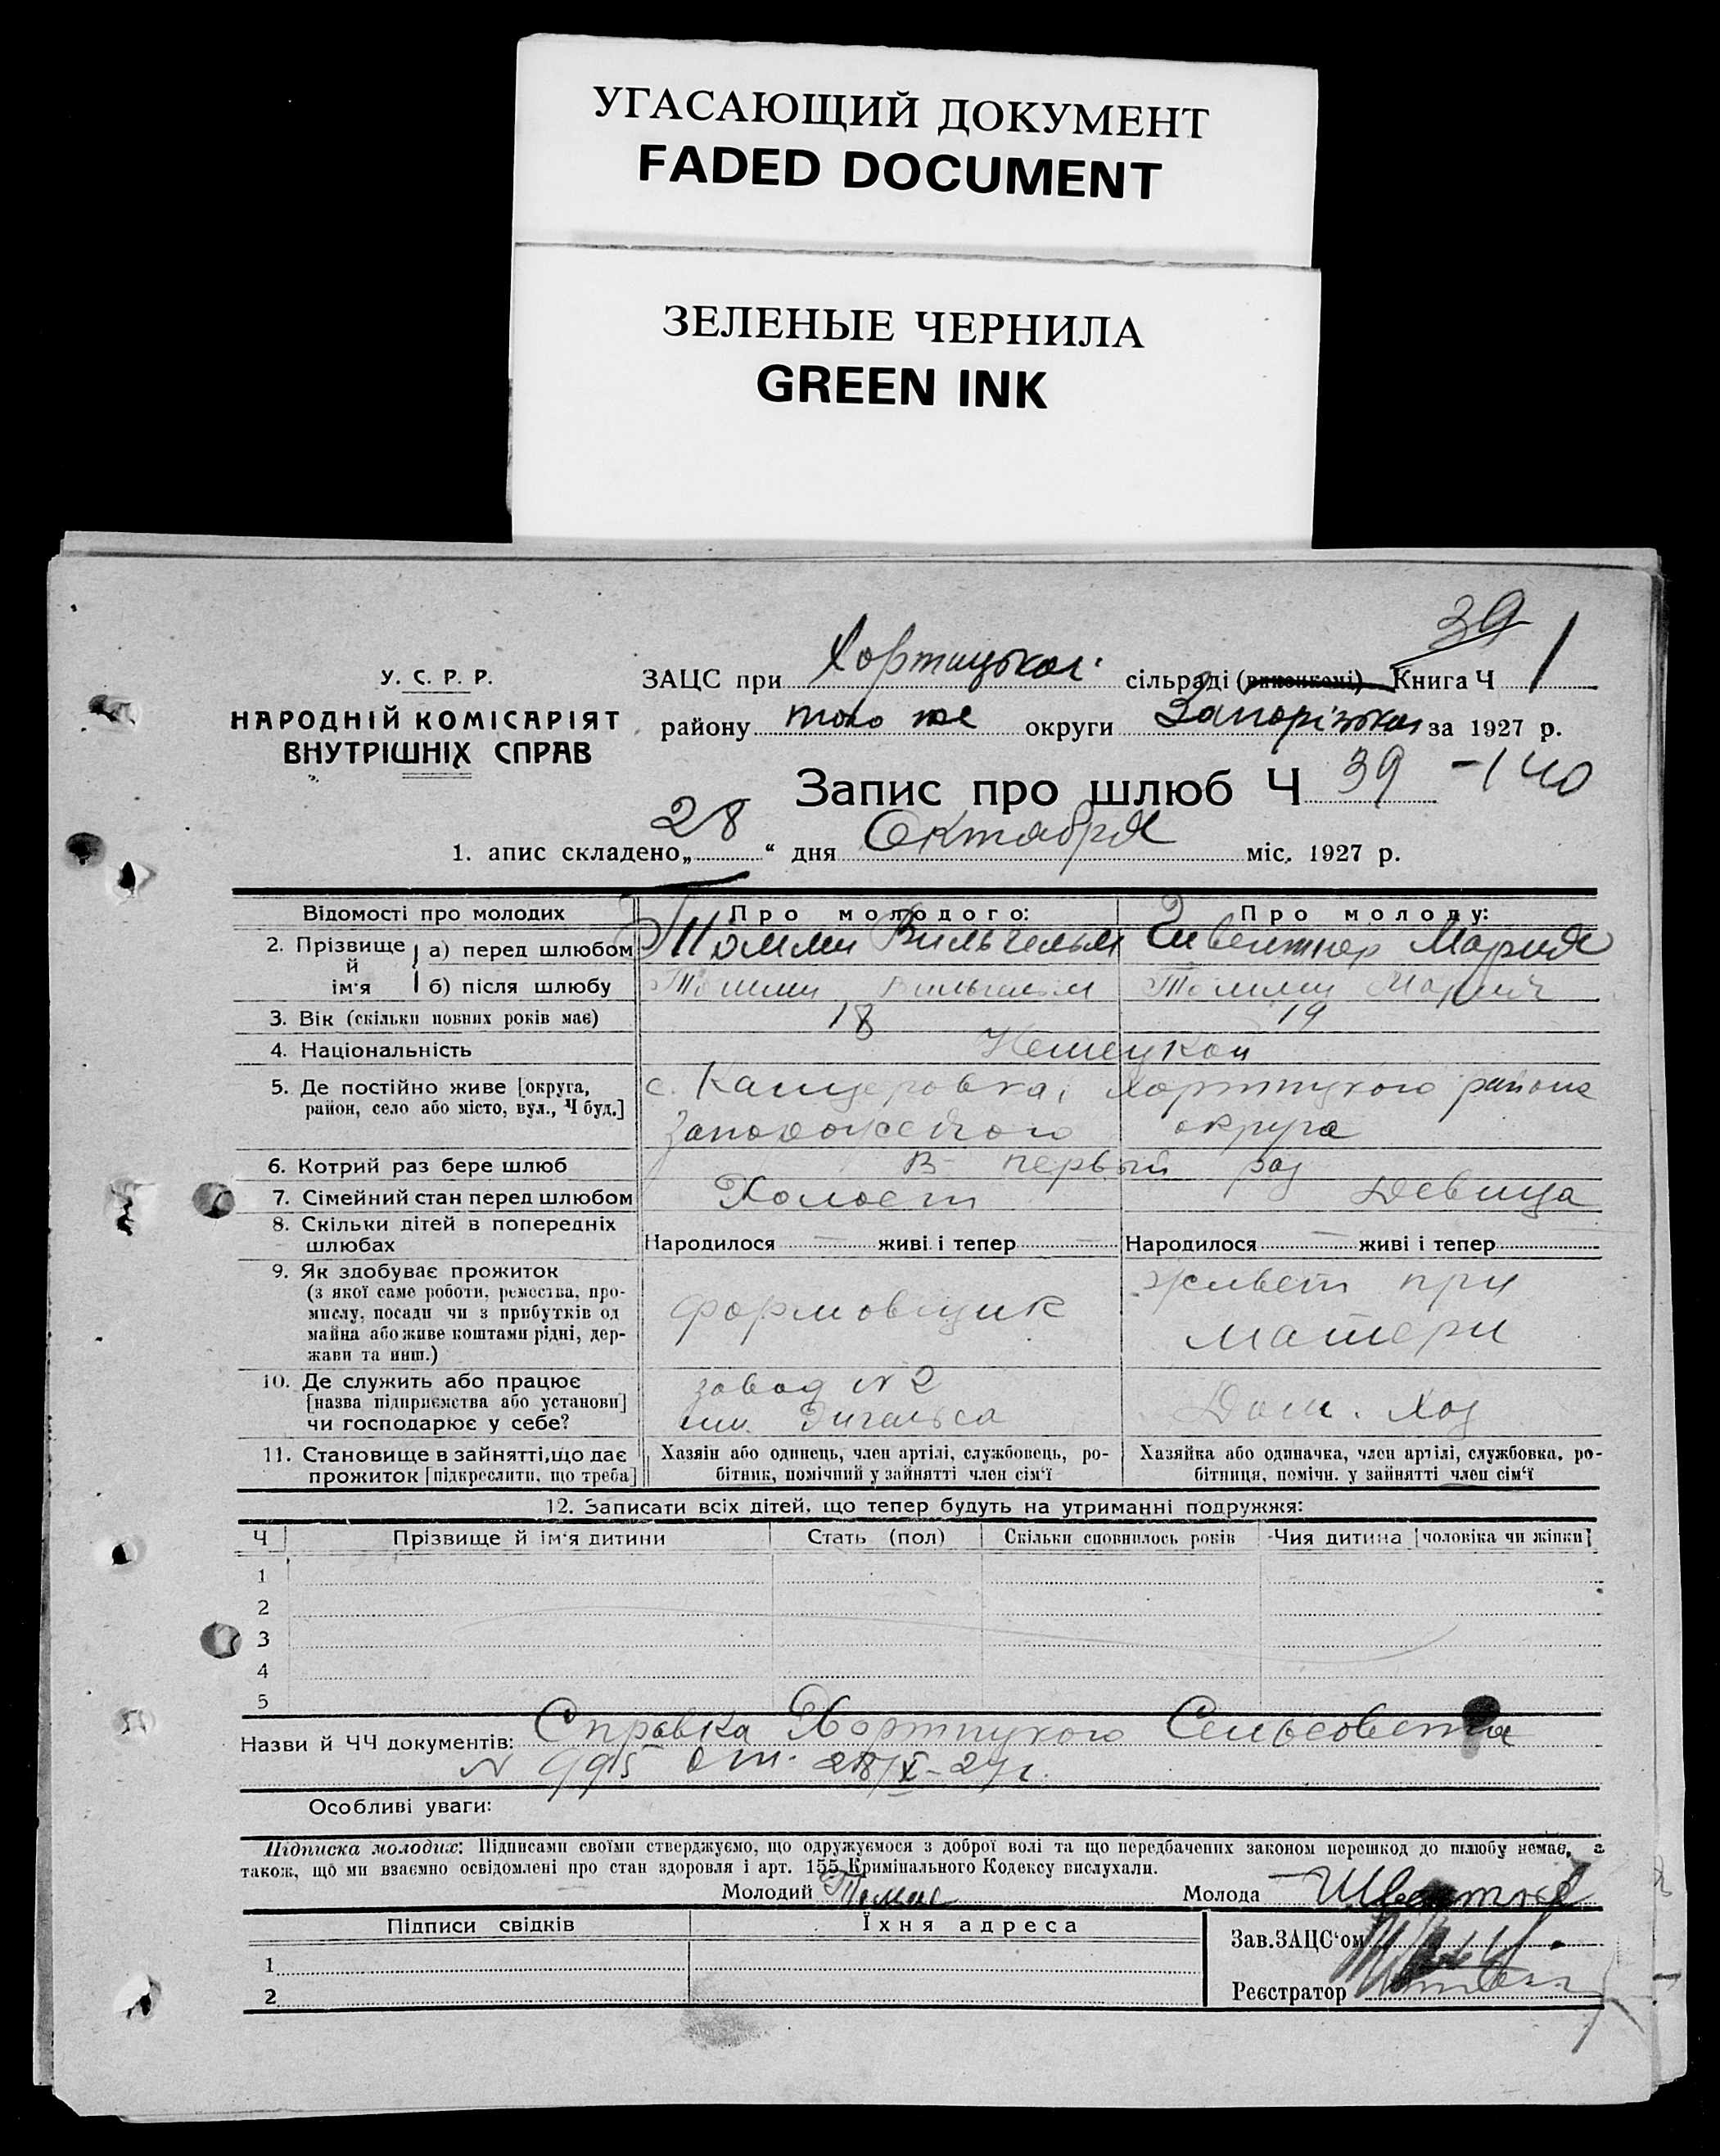 УГАСАЮЩИЙ ДОКУМЕНТ
FADED DOCUMENT
ЗЕЛЕНЫЕ ЧЕРНИЛА
GREEN INK
39
У. С. Р. Р.
НАРОДНІЙ КОМІСАРІЯТ
ВНУТРІШНІХ СПРАВ
ЗАЦС при Хортицькой сільраді (виконкомі) Книга Ч 1
району того же округи Запоріжкой за 1927 р.
Запис про шлюб Ч 39 - 140
1. апис складено „ 28 “ дня Октября міс. 1927 р.
Відомості про молодих Про молодого: Про молоду:
2. Прізвище й ім'я а) перед шлюбом Вильгельм Мария
б) після шлюбу
3. Вік (скільки повних років має) 18 19
4. Національність Немецкой
5. Де постійно живе [округа, с. Канцеровка, Хортицкого района
район, село або місто, вул., Ч буд.] Запорожского округа
6. Котрий раз бере шлюб В первый раз
7. Сімейний стан перед шлюбом Холост Девица
8. Скільки дітей в попередніх
шлюбах Народилося — живі і тепер — Народилося — живі і тепер
9. Як здобуває прожиток
(з якої саме роботи, ремества, про-
мислу, посади чи з прибутків од
майна або живе коштами рідні, дер-
жави та инш.) формовщик живет при матери
10. Де служить або працює завод N 2
[назва підприємства або установи] им. Энгельса Дом. Хоз
чи господарює у себе?
11. Становище в зайнятті, що дає Хазяїн або одинець, член артілі, службовець, ро- Хазяйка або одиначка, член артілі, службовка, ро-
прожиток [підкреслити, що треба] бітник, помічний у зайнятті член сім'ї бітниця, помічн. у зайнятті член сім'ї
12. Записати всіх дітей, що тепер будуть на утриманні подружжя:
Ч Прізвище й ім'я дитини Стать (пол) Скільки сповнилось років Чия дитина [чоловіка чи жінки]
1
2
3
4
5
Назви й ЧЧ документів: Справка Хортицкого Сельсовета
N 995 от 28/X-27г.
Особливі уваги:
Підписка молодих: Підписами своїми стверджуємо, що одружуємося з доброї волі та що передбачених законом перешкод до шлюбу немає, а
також, що ми взаємно освідомлені про стан здоровля і арт. 155 Кримінального Кодексу вислухали.
Молодий Молода
Підписи свідків Їхня адреса
Зав.ЗАЦС'ом
1
Реєстратор
2